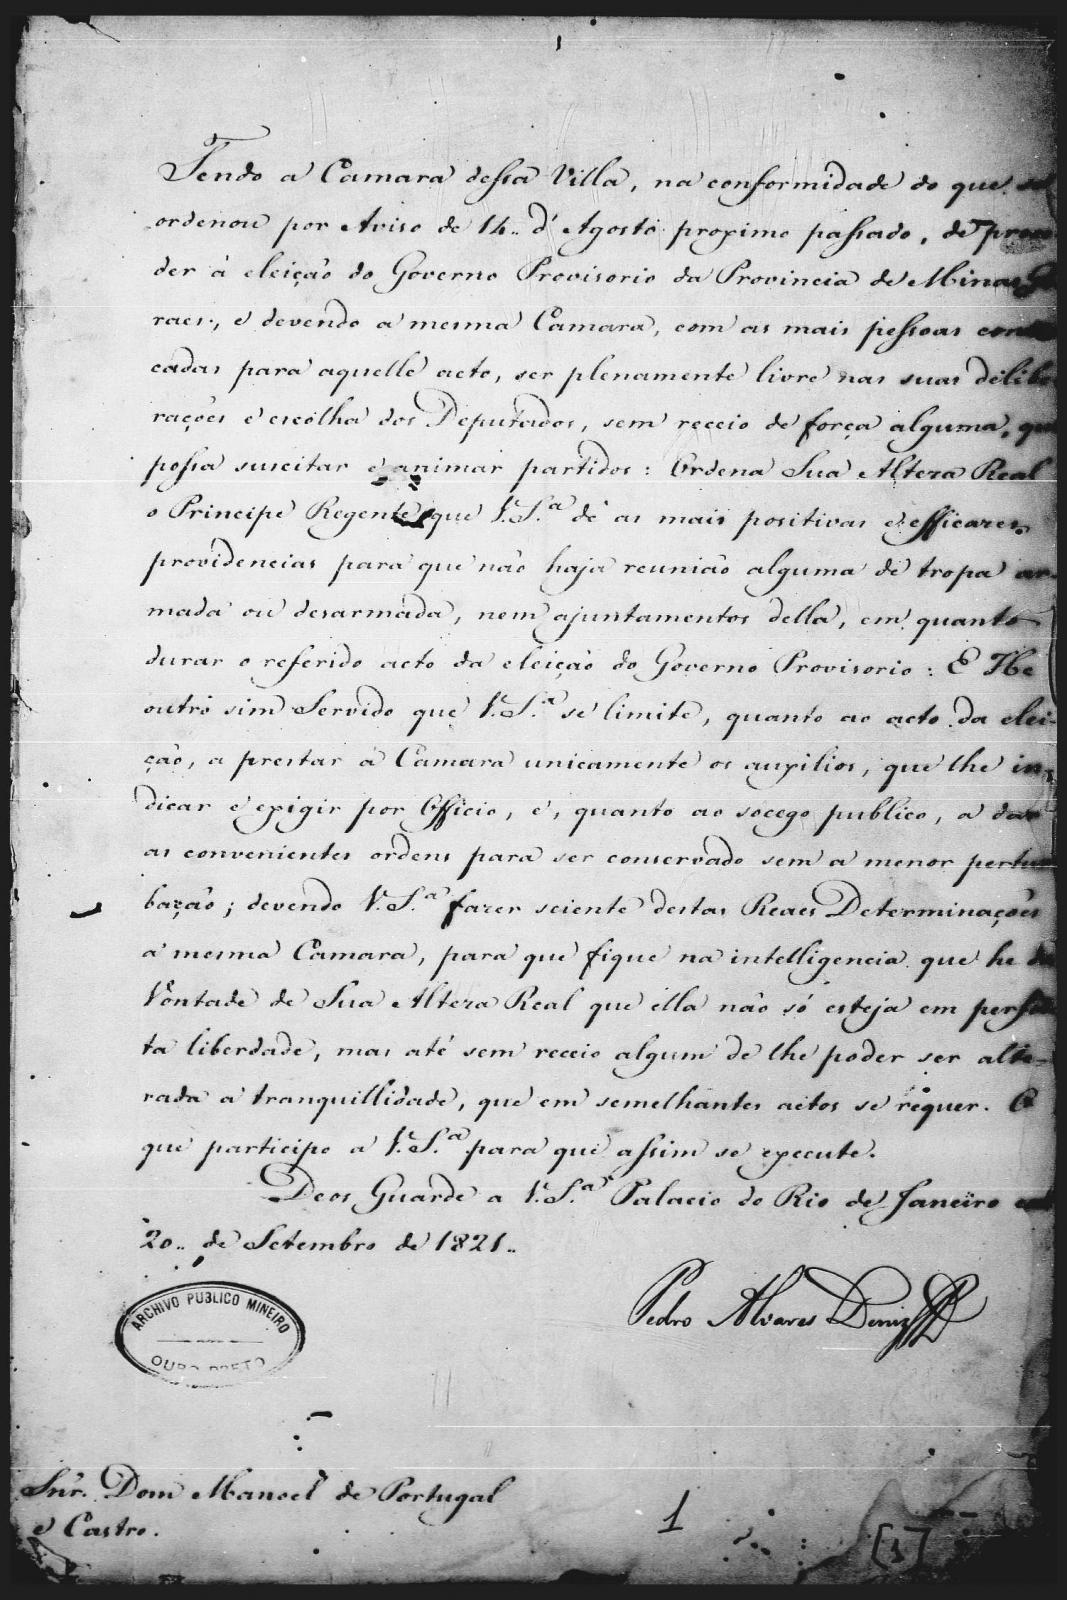 1
Tendo a Camara dessa Villa, na conformidade do que se
ordenou por Aviso de 14.. d'Agosto proximo passado, de proce
der á eleição do Governo Provisorio da Provincia de Minas Ge
raes, e devendo a mesma Camara, com as mais pessoas convo
cadas para aquelle acto, ser plenamente livre nas suas delibe
rações e escolha dos Deputados, sem receio de força alguma, que
possa suscitar e animar partidos: Ordena Sua Alteza Real
o Principe Regente que V. S.ª dê as mais positivas e efficazes
providencias para que não haja reunião alguma de tropa ar-
mada ou desarmada, nem ajuntamentos della, em quanto
durar o referido acto da eleição do Governo Provisorio: E He
outro sim Servido que V. S.ª se limite, quanto ao acto da elei-
ção, a prestar á Camara unicamente os auxilios, que lhe in-
dicar e exigir por Officio, e, quanto ao socego publico, a dar
as convenientes ordens para ser conservado sem a menor pertur
bação; devendo V. S.ª fazer sciente destas Reaes Determinações
a mesma Camara, para que fique na intelligencia que he da
Vontade de Sua Alteza Real que ella não só esteja em perfei
ta liberdade, mas até sem receio algum de lhe poder ser alte-
rada a tranquillidade, que em semelhantes actos se requer. O
que participo a V. S.ª para que assim se execute.
Deos Guarde a V. S.ª Palacio do Rio de Janeiro em
20.. de Setembro de 1821..
Pedro Alvares Diniz
ARCHIVO PUBLICO MINEIRO
OURO PRETO
Snr. Dom Manoel de Portugal
e Castro.
1
[1]